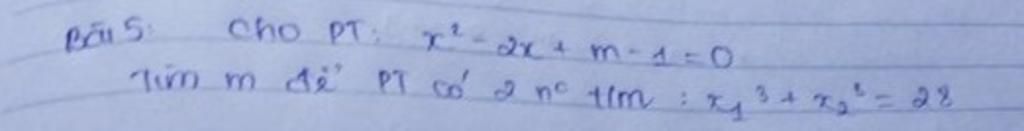 Bài 5: Cho PT: x² - 2x + m - 1 = 0
Tìm m để PT có 2 n° t/m : x₁³ + x₂³ = 28